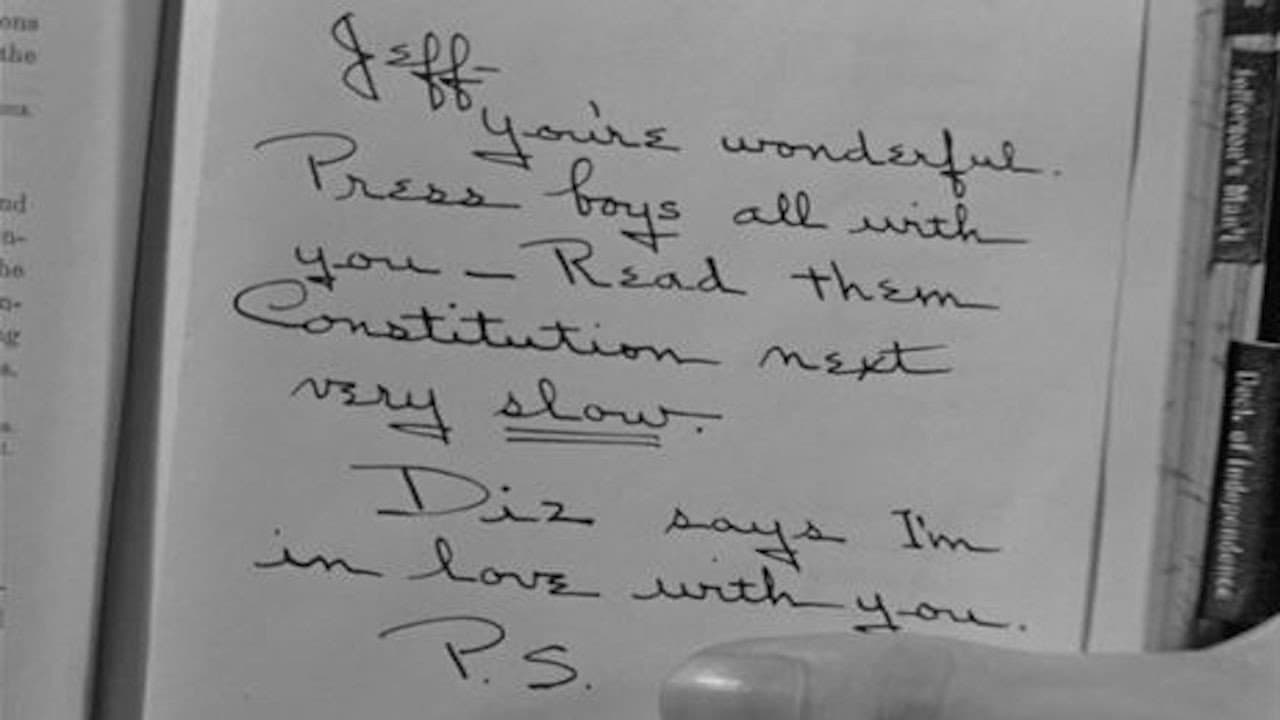 ons
the
nd
n-
he
n-
ng
Jeff-
you're wonderful.
Press boys all with
you - Read them
Constitution next
very slow.
Diz says I'm
in love with you.
P.S.
Decl. of Independence